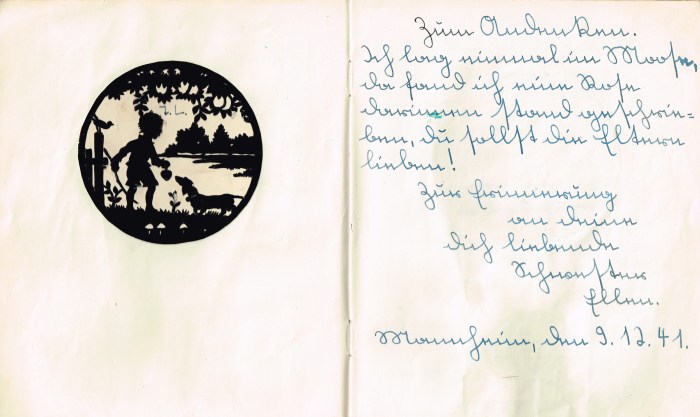 Zum Andenken.
Ich lag einmal im Moose,
da fand ich eine Rose
darinnen stand geschrie=
ben, du sollst die Eltern
lieben!
Zur Erinnerung
an deine
dich liebende
Schwester
Ellen.
Mannheim, den 9. 12. 41.